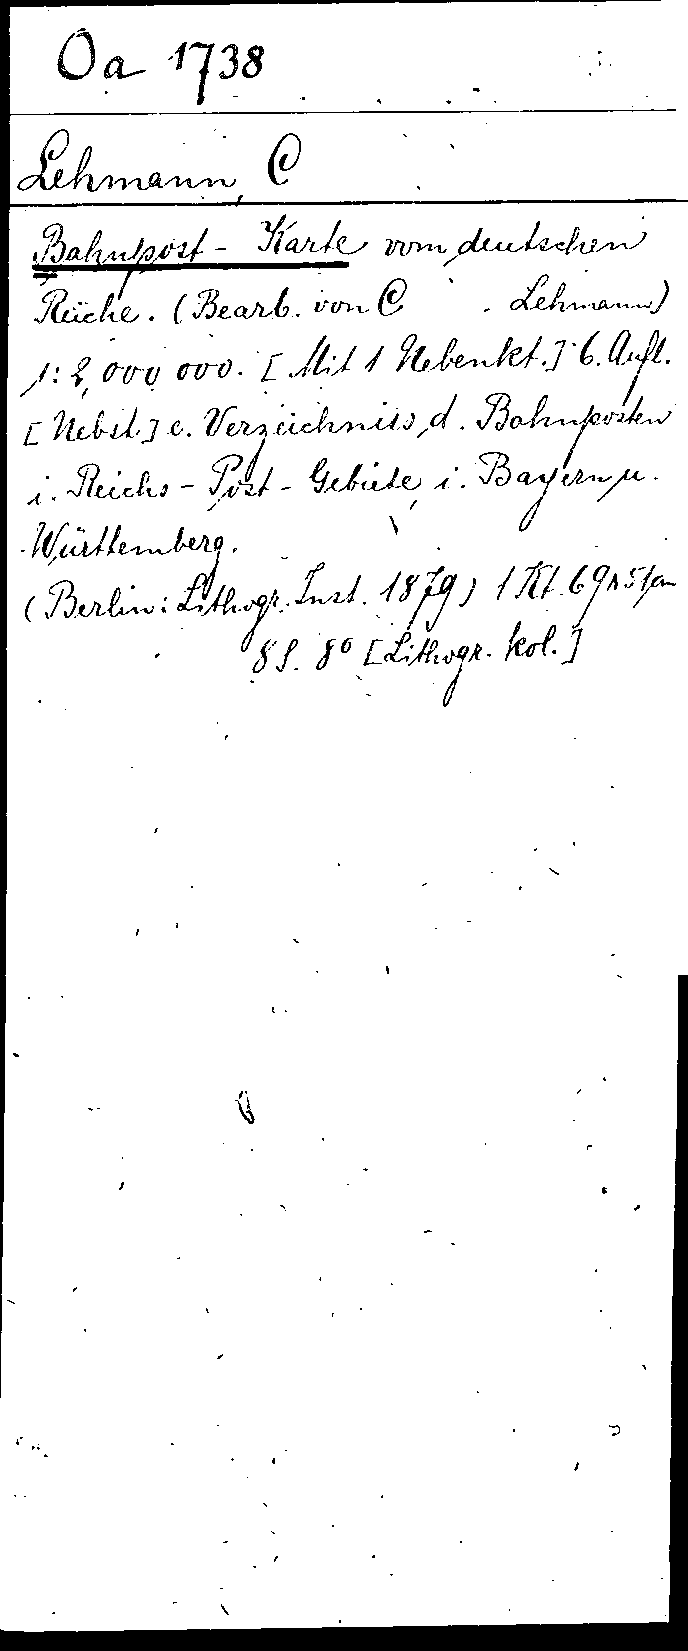 Oa 1738
Lehmann, C
Bahnpost - Karte vom deutschen
Reiche. (Bearb. von C . Lehmann)
1:2,000 000. [Mit 1 Nebenkt.] 6. Aufl.
[Nebst] e. Verzeichniss d. Bahnposten
i. Reichs - Post - Gebiete, i. Bayern u.
Württemberg.
(Berlin: Lithogr. Inst. 1879) 1 Kt. 69 x 51 cm
8 S. 8° [Lithogr. kol.]